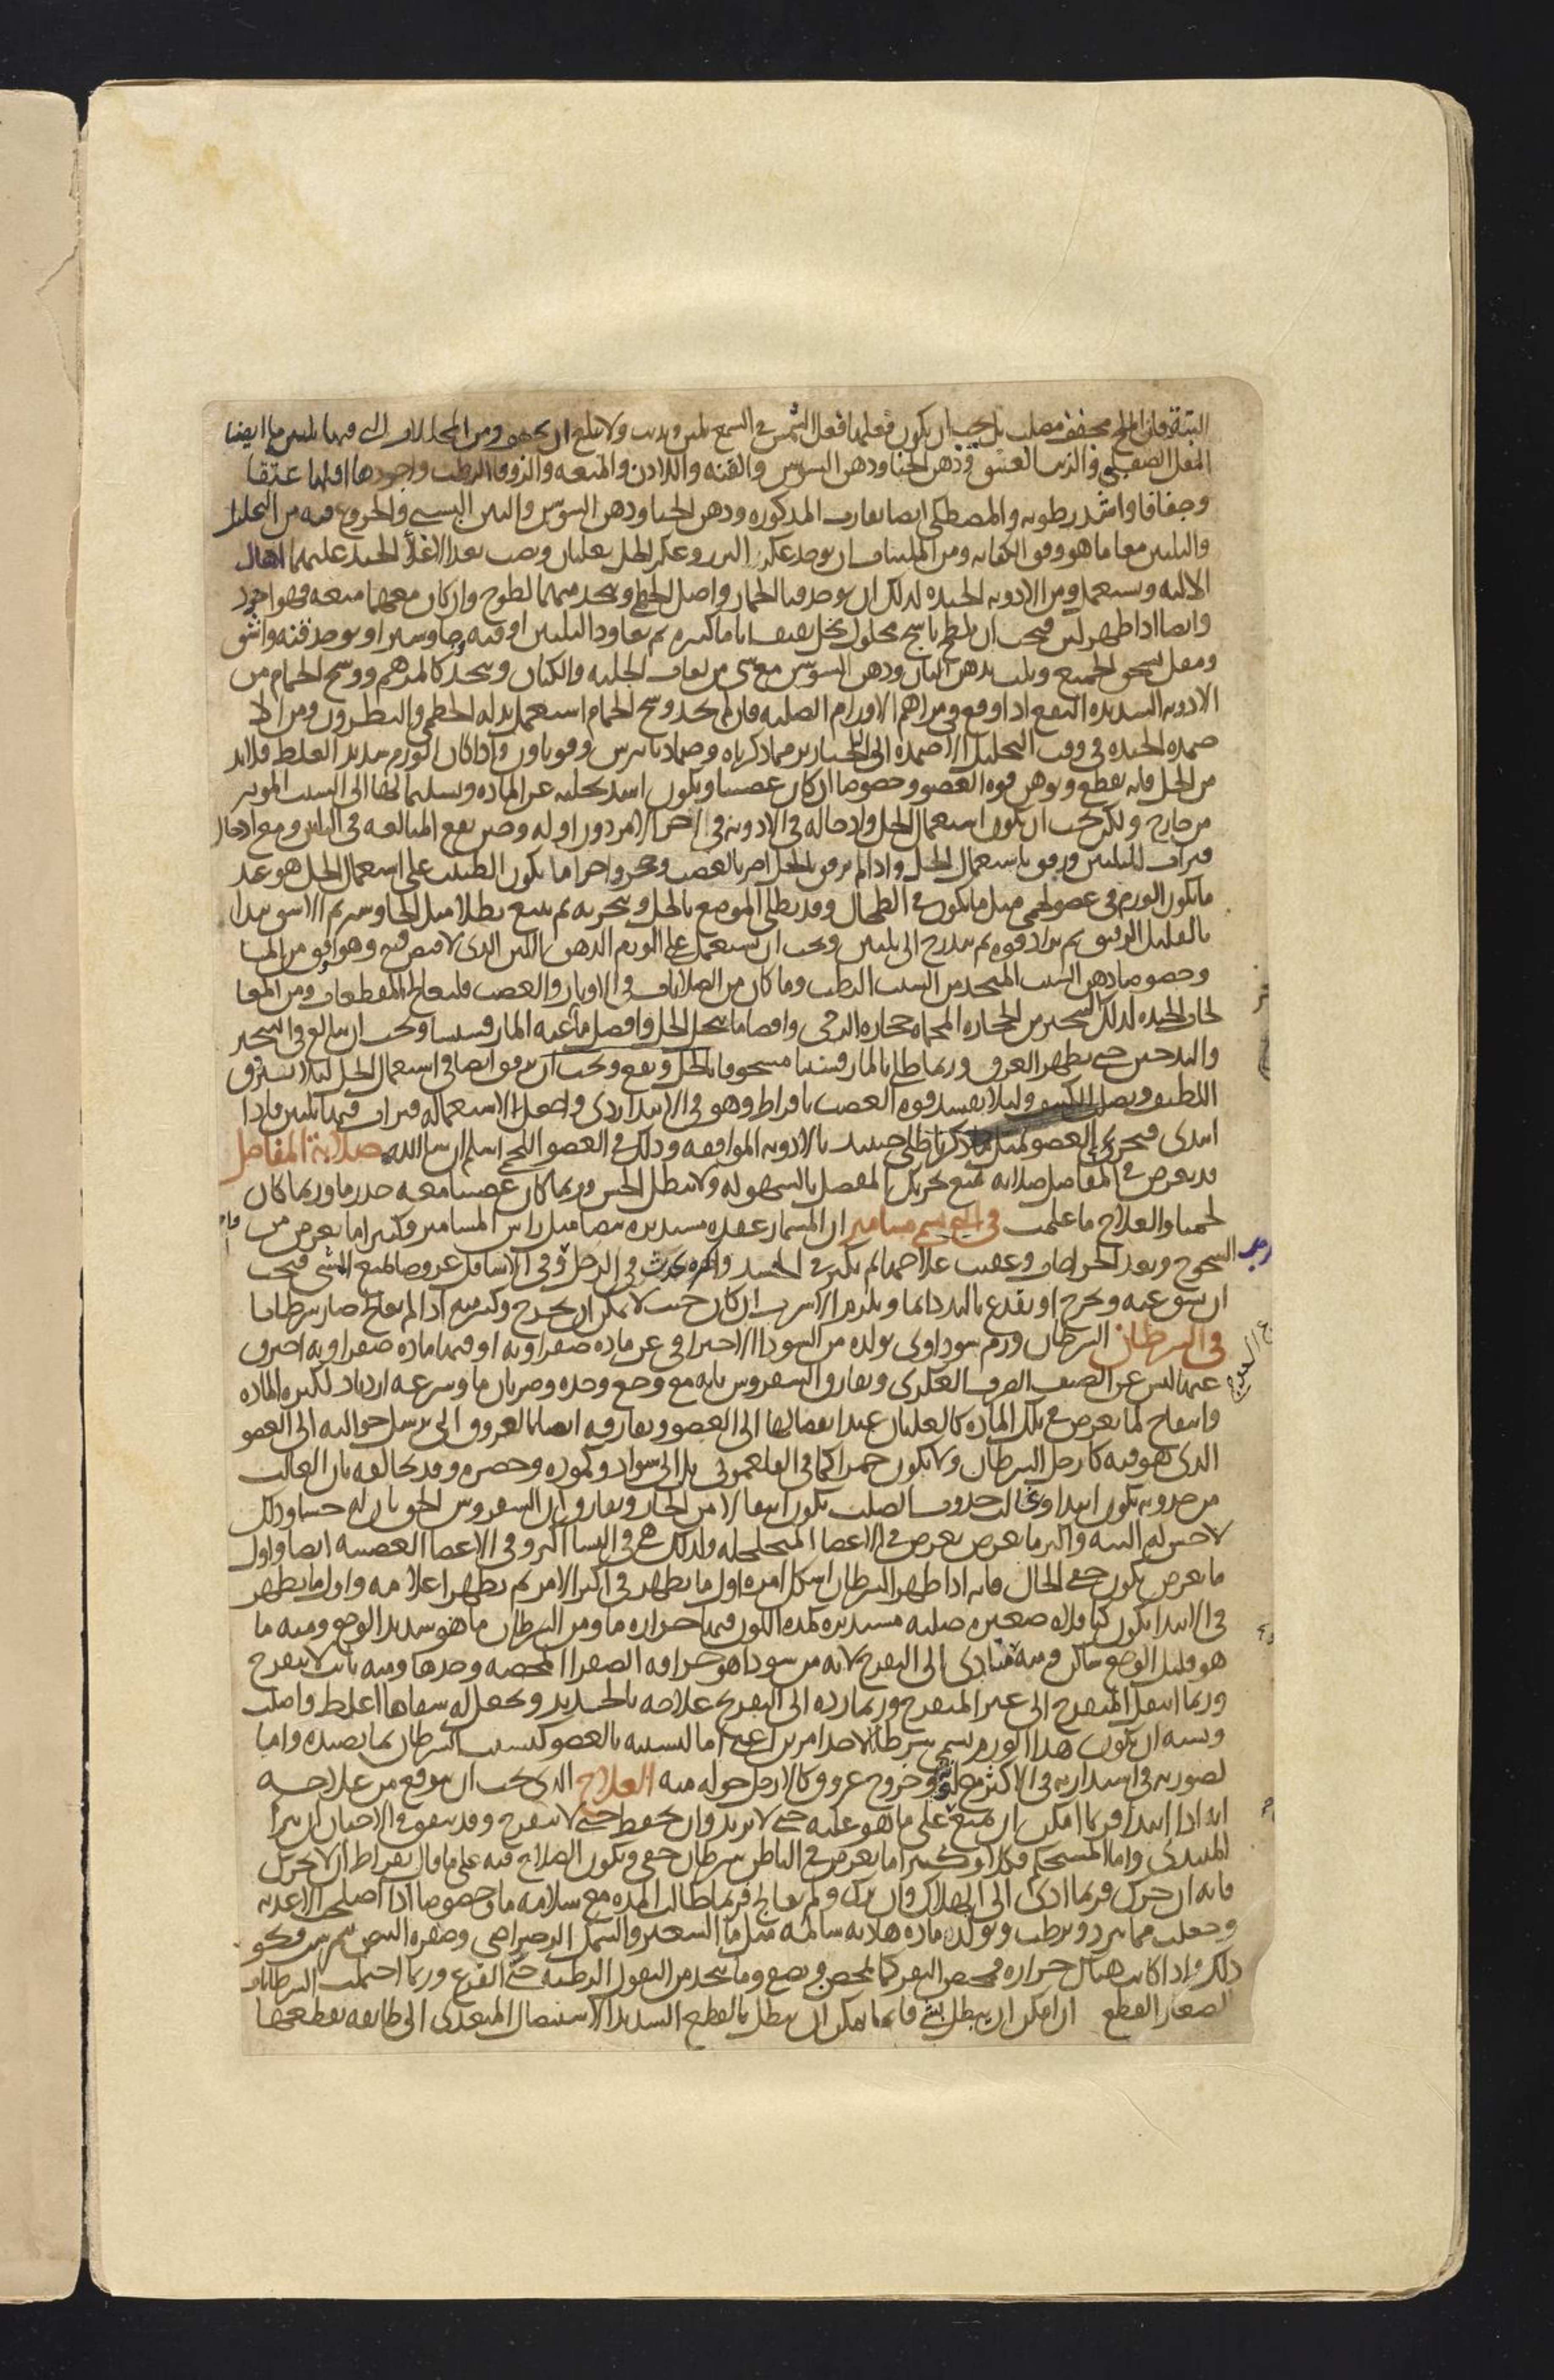 البتة فان الملح مجفف مصلب بل يجب ان يكون فعلها فعل الشمس في الشمع تلين وتذيب ولا تبلغ ان تجفف ومن المحللات التي فيها تليين ما ايضا
المقل الصقلبي والزيت العتيق ودهن الحنا ودهن السوسن والقنه واللادن والميعه والزوفا الرطب واجودها اقلها عتقا
وجفافا واشد رطوبه والمصطكي ايضا تقارب المذكوره ودهن الحنا ودهن السوسن والتين اليبس والخروع فيه من التحليل
والتليين معا ما هو فوق الكفايه ومن الملينات ان يوخذ عكر البزر وعكر الخل يغليان ويصب بعد الاغلا الجيد عليهما اهال
الاليه ويستعمل ومن الادويه الجيده لذلك ان يوخذ قثا الحمار واصل الخطمي ويتخذ منهما لطوخ وان كان معهما ميعه فهو اجود
وايضا اذا ظهر لين فيجب ان يلطخ باشج محلول بخل ثقيف اياما كثيره ثم يعاود التليين او قنه وجاوسير او يوخذ قنه واشق
ومقل يسحق الجميع ويلت بدهن البان ودهن السوسن مع شي من لعاب الحلبه والكتان ويتخذ كالمرهم ووسخ الحمام من
الادويه الشديده النفع اذا وقع في مراهم الاورام الصلبه فان لم يجد وسخ الحمام استعمل بدله الخطمي والنطرون ومن الا
ضمده الجيده في وقت التحليل الاضمده التي للخنازير مما ذكرناه وضماد باترس وقوباون واذا كان الورم شديد الغلظ فلا بد
من الخل فانه يقطع ويوهن قوه العضو وخصوصا ان كان عصبيا ويكون اشد تخليه عن الماده وتسليما لها الى السبب الموثر
من خارج ولكن يجب ان يكون استعمال الخل وادخاله في الادويه في اخر الامر دون اوله وحين يقع المبالغه في التليين ومع ادخال
فترات للتليين ورفق باستعمال الخل واذا لم يرفق بالخل اضر بالعصب وحجر واجرا ما يكون الطبيب على استعمال الخل هو عند
ما يكون الورم في عضو لحمي مثل ما يكون في الطحال وقد يطلى الموضع بالخل وبخر به ثم يتبع بطلا مثل الجاوشير ثم الاشق يبدا
بالقليل الرقيق ثم يزاد قوه ثم يتدرج الى تليين ويجب ان يستعمل على الورم الدهن اللين الذي لا قبض فيه وهو اوفق من الما
وخصوصا دهن الشبث المتخذ من الشبث الرطب وما كان من الصلابات في الاوتار والعصب فليعالج بالمقطعات ومن المعا
لجات الجيده لذلك التبخير من الحجاره المحماه حجاره الرحى وافضل ما يبخر الخل وافضل ما عليه المارقشيثا ويجب ان يبالغ في التبخير
والتدخين حتى يظهر العرق وربما طلي بالمارقشيثا مسحوقا بالخل ونفع ويجب ان يرفق ايضا في استعمال الخل لئلا يستفرق
اللطيف ويصلب الكثيف ولئلا يفسد قوه العصب بافراط وهو في الابتدا ردي واجعل لاستعماله فترات فيها تليين فاذا
ابتدى فبخر العضو لمثل ما ذكرنا طلي حينئذ بالادويه الموافقه وذلك في العضو اللحمي اسلم ان شا الله صلابة المفاصل
قد يعرض في المفاصل صلابه تمنع تحريك المفصل بالسهوله ولا تبطل الحس وربما كان عصبيا معه خدر ما وربما كان
لحميا والعلاج ما علمت في التي تسمى مسامير ان المسمار عقده مستديره بيضا مثل راس المسامير وكثيرا ما يعرض من
السحوج وبعد الجراحات وعقيب علاجها ثم يكثر في الجسد واكثره يحدث في الرجل وفي الاسافل عروضا لمنع المشي فيجب
ان يشق عنه ويخرج او يفدغ باليد دايما ويلزم الاسرب ان كان حيث لا يمكن ان يخرج وكثير منه اذا لم يعالج صار سرطانا
في السرطان السرطان ورم سوداوي تولده من السودا الاحتراقي عن ماده صفراويه او فيها ماده صفراويه احترق
عنها ليس عن الصنف الصرف العكري ويفارق السقيروس بانه مع وجع وحده وضربان ما وسرعه ازدياد لكثره الماده
وانتفاخ لما يعرض في تلك الماده كالغليان عند انفصالها الى العضو ويفارقه ايضا بالعروق التي ترسل حواليه الى العضو
الذي هو فيه كارجل السرطان ولا يكون حمرا كما في الفلغموني بل الى سواد وكموده وخضره وقد يخالفه بان الغالب
من حدوثه يكون ابتدا وغالب حدوث الصلب يكون انتقالا من الحار ويفارق ان السقيروس الحق بان له حسا وذلك
لا حس له البته واكثر ما يعرض يعرض في الاعضا المتخلخله ولذلك هي في النسا اكثر وفي الاعضا العصبيه ايضا واول
ما يعرض يكون خفي الحال فانه اذا ظهر السرطان اشكل امره اول ما يظهر في اكثر الامر ثم يظهر اعلامه واول ما يظهر
في الابتدا يكون كباقلاه صغيره صلبه مستديره كمده اللون فيها حراره ما ومن السرطان ما هو شديد الوجع ومنه ما
هو قليل الوجع ساكن ومنه متادي الى التقرح لانه من سودا هو حراقه الصفرا المحضه وحدها ومنه ثابت لا يتقرح
وربما انتقل المتقرح الى غير المتقرح وربما رده الى التقرح علاجه بالحديد ويجعل له شفاها اغلظ واصلب
ويشبه ان يكون هذا الورم يسمى سرطانا لاحد امرين اعني اما لتشبثه بالعضو كتشبث السرطان بما يصيده واما
لصورته في استدارته في الاكثر مع لونه وخروج عروق كالارجل حوله منه العلاج الذي يجب ان يتوقع من علاجه
انه اذا ابتدا فربما امكن ان يمنع على ما هو عليه حتى لا يزيد وان يحفظ حتى لا يتقرح وقد يتفق في الاحيان ان يبرا
المبتدي واما المستحكم فكلا وكثيرا ما يعرض في الباطن سرطان خفي ويكون الصلاح فيه على ما قال بقراط ان لا يحرك
فانه ان حرك فربما ادى الى الهلاك وان ترك ولم يعالج فربما طالت المده مع سلامه ما وخصوصا اذا اصلحت الاغذيه
وجعلت مما يبرد ويرطب ويولد ماده هاديه سالمه مثل ما الشعير والسمك الرضراضي وصفره البيض نيمبرشت ونحو
ذلك واذا كانت هناك حراره فمخيض البقر كما يمخض ويصفى وما يتخذ من البقول الرطبه حتى القرع وربما احتملت السرطانات
الصغار القطع ان امكن ان يبطل بشي فانما يمكن ان يبطل بالقطع الشديد الاستيصال المتعدي الى طايفه يقطعها